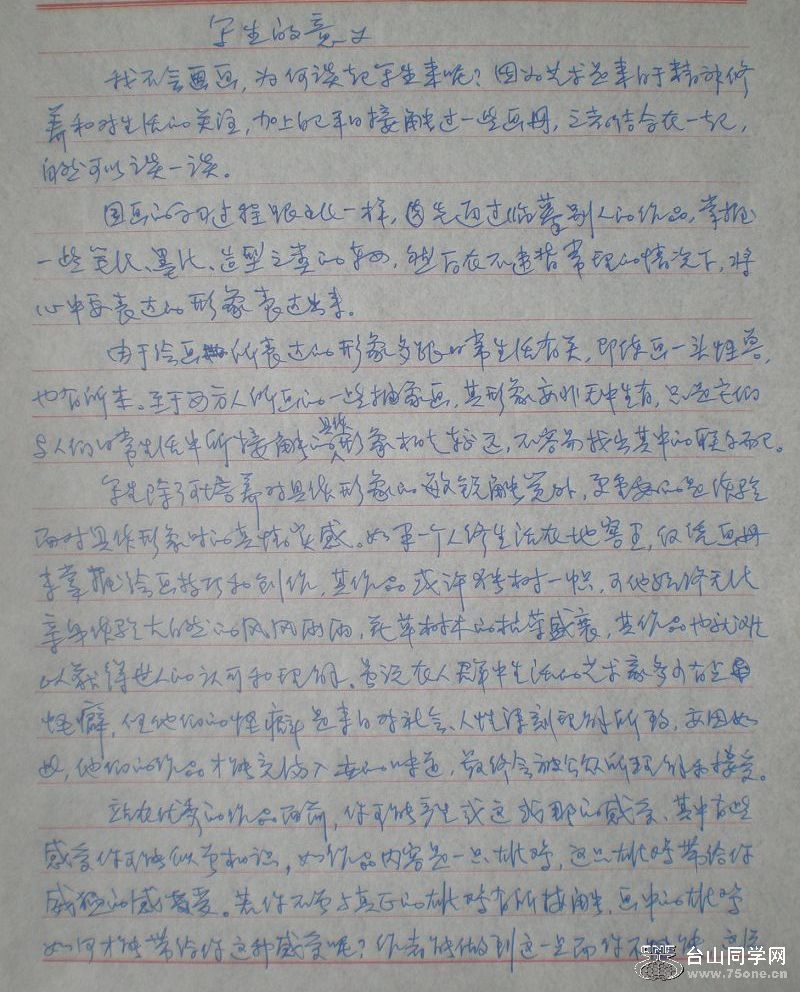 写生的意义
我不会画画，为何谈起写生来呢？因为艺术是来自于精神修
养和对生活的关注，加上自己平日接触过一些画册，之前结合在一起，
自然可以谈一谈。
国画的学习过程跟文化一样，首先通过临摹别人的作品，掌握
一些笔法、墨法、造型之类的东西，然后在不违背常理的情况下，将
心中要表达的形象表达出来。
由于绘画所表达的形象多跟日常生活有关，即使画一头怪兽，
也有所本。至于西方人所画的一些抽象画，其形象亦非无中生有，只是它们
与人们日常生活中所接触的具体形象相比较远，不容易找出其中的联系而已。
写生除了可培养对具体形象的敏锐触觉外，更重要的是体验
面对具体形象时的真情实感。如果一个人终生活在地窖里，仅凭画册
来掌握绘画技巧和创作，其作品或许独树一帜，可他始终无法
亲身体验大自然的风风雨雨，花草树木的枯荣盛衰，其作品也就难
以获得世人的认可和理解。虽说在人群中生活的艺术家多少有点
怪癖，但他们的怪癖是来自对社会、人性深刻理解所致，亦因如
此，他们的作品才能充满人世的味道，最终会被公众所理解和接受。
站在优秀的作品面前，你可能产生或这或那的感受、其中有些
感受你可能似曾相识，如作品内容是一只雄鸡，这只雄鸡带给你
威猛的感受。若你不曾与真正的雄鸡有所接触，画中的雄鸡
如何才能带给你这种感受呢？作者能做到这一点而你不能
台山同学网
www.75one.net
75ONE